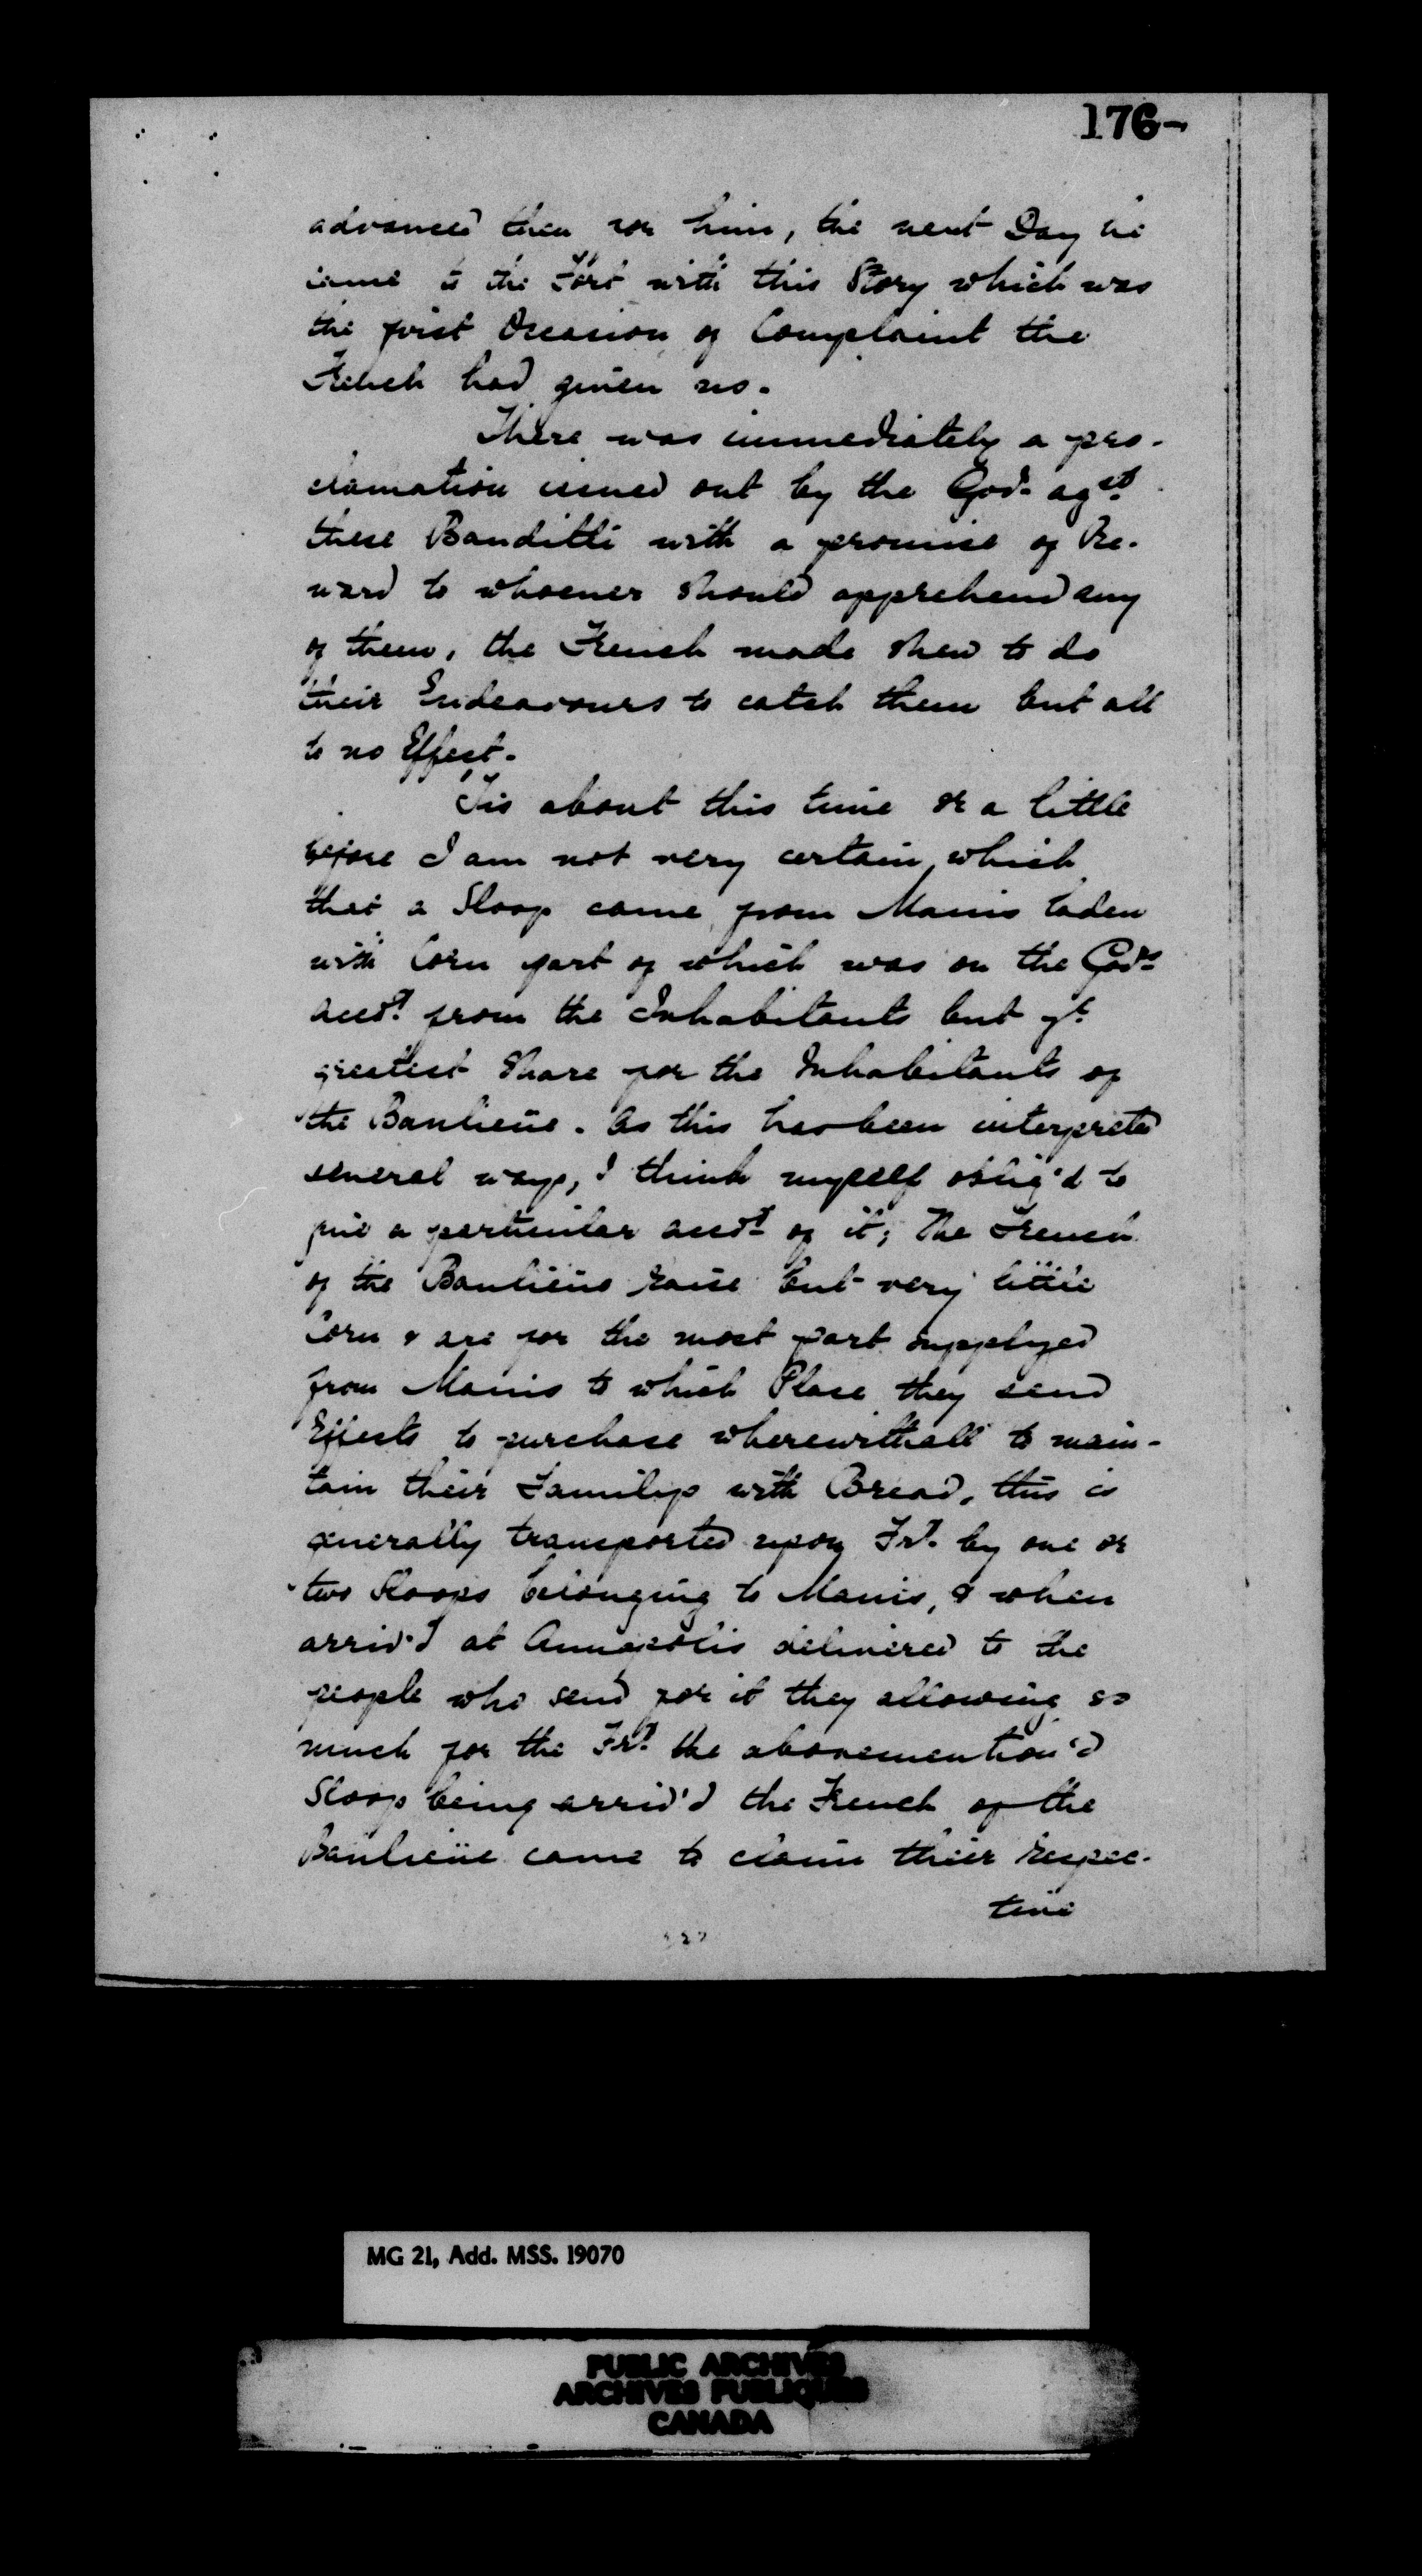 176-
advanced then for him, the next Day he
came to the Fort with this Story which was
the first Occasion of Complaint the
French had given us.
There was immediately a pro-
clamation issued out by the Govr. agst.
these Banditti with a promise of Re-
ward to whoever should apprehend any
of them, the French made shew to do
their Endeavours to catch them but all
to no Effect.
Tis about this time or a little
before I am not very certain which
that a Sloop came from Manis laden
with Corn part of which was on the Govrs.
accot. from the Inhabitants but ye
greatest Share for the Inhabitants of
the Banlieüe. As this has been interpreted
several ways, I think myself oblig'd to
give a particular accot. of it; The French
of the Banlieüe raise but very little
Corn & are for the most part supplyed
from Manis to which Place they send
Effects to purchase wherewithall to main-
tain their Familys with Bread, this is
generally transported upon Frt. by one or
two Sloops belonging to Manis, & when
arriv'd at Annapolis delivered to the
people who send for it they allowing so
much for the Frt. the abovemention'd
Sloop being arriv'd the French of the
Banlieüe came to claim their respec-
tive
MG 21, Add. MSS. 19070
PUBLIC ARCHIVES
ARCHIVES PUBLIQUES
CANADA